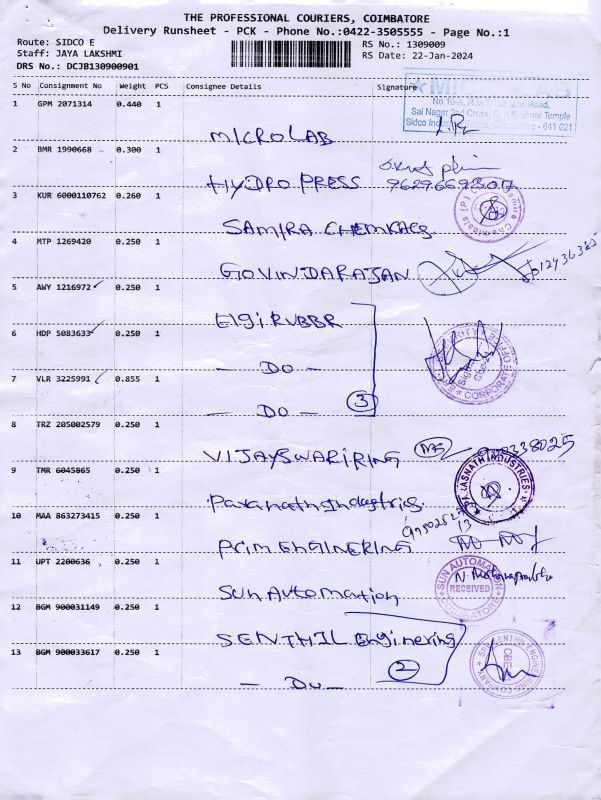 THE PROFESSIONAL COURIERS, COIMBATORE
Delivery Runsheet - PCK - Phone No.:0422-3505555 - Page No.:1
Route: SIDCO E
RS No.: 1309009
Staff: JAYA LAKSHMI
RS Date: 22-Jan-2024
DRS No.: DCJB130900901
S No Consignment No Weight PCS Consignee Details Signature
No.10-A, Road,
Sai Nagar 2nd Cross, Temple
Sidco Coimbatore - 641 021
1 GPM 2071314 0.440 1
MICROLAB
2 BMR 1990668 0.300 1
HYDRO PRESS
3 KUR 6000110762 0.260 1
SAMIRA CHEMICALS
4 MTP 1269420 0.250 1
GOVINDARAJAN
5 AWY 1216972 0.250 1
Elgi RUBBR
6 HDP 5083633 0.250 1
- DO -
7 VLR 3225991 0.855 1
- DO - 3
8 TRZ 205002579 0.250 1
VIJAYSWARIRING
9 TMR 6045865 0.250 1
PARASNATH INDUSTRIES
Paranath Indastries
10 MAA 863273415 0.250 1
Prim ENGINERING
11 UPT 2200636 0.250 1
SUN AUTOMATION
RECEIVED
COIMBATORE
Sun Automation
12 BGM 900031149 0.250 1
SENTHIL Enginering
13 BGM 900033617 0.250 1
- Do - 2
CBE